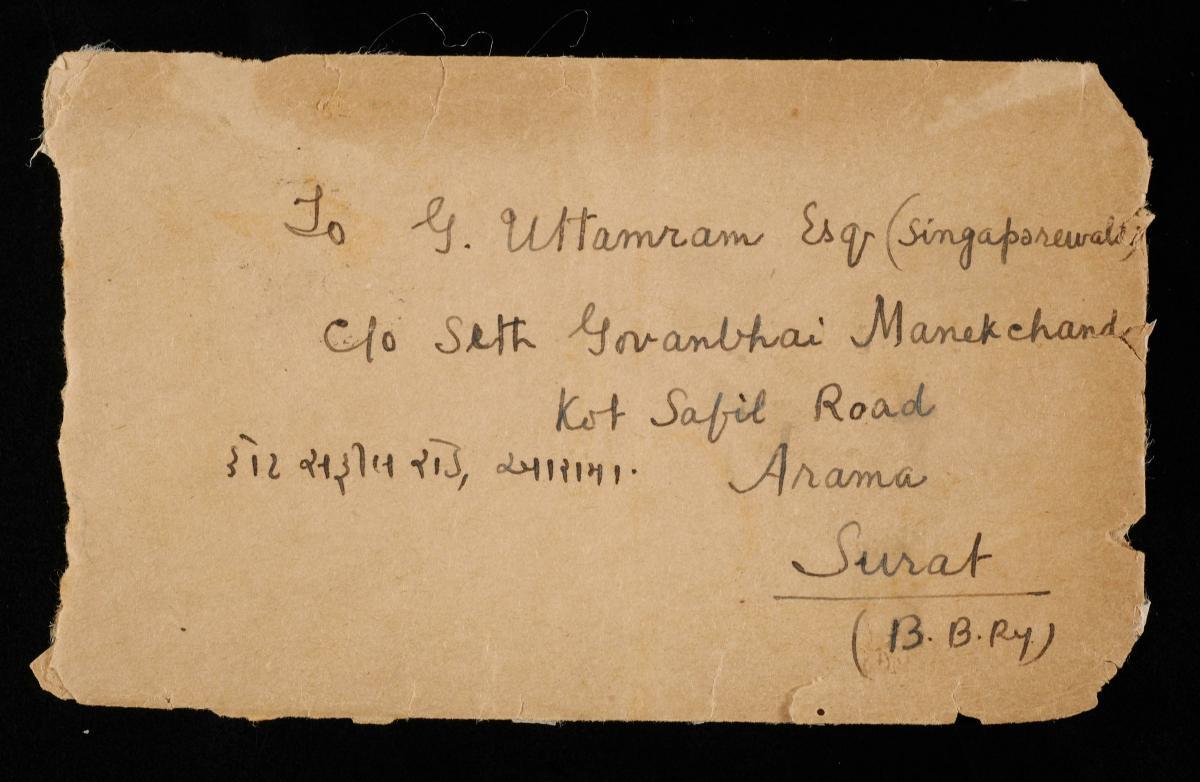 To G. Uttamram Esq (Singaporewala)
C/o Seth Govanbhai Manekchand
Kot Safil Road
કોટ સફીલ રોડ, આરામા. Arama
Surat
(B. B. Ry)